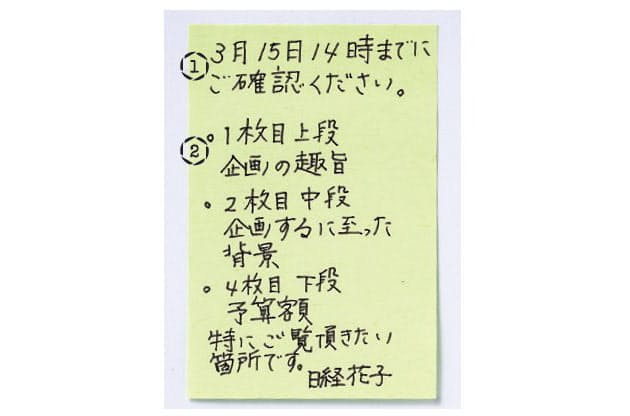 ① 3月15日14時までに
ご確認ください。
② 。1枚目上段
企画の趣旨
。2枚目中段
企画するに至った
背景
。4枚目下段
予算額
特にご覧頂きたい
箇所です。
日経花子